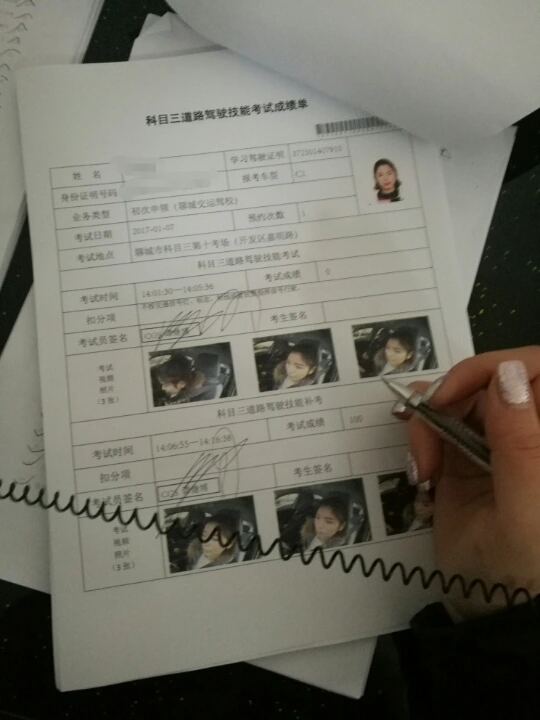 科目三道路驾驶技能考试成绩单
姓 名 学习驾驶证明
身份证明号码 报考车型 C1
业务类型 初次申领（聊城交运驾校）
考试日期 2017-01-07 预约次数 1
考试地点 聊城市科目三第十考场（开发区嘉明路）
科目三道路驾驶技能考试
考试时间 14:01:30—14:05:36 考试成绩 0
扣分项
考试员签名 考生签名
考试
视频
照片
（3张）
科目三道路驾驶技能补考
考试时间 14:06:55—14:16:58 考试成绩 100
扣分项
考试员签名 考生签名
考试
视频
照片
（3张）